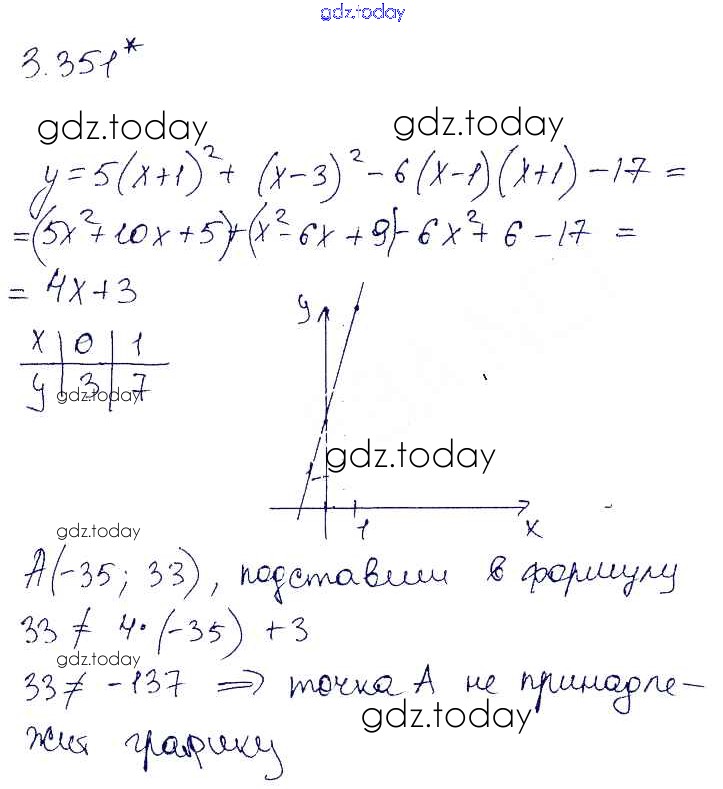 gdz.today
3.351*
gdz.today gdz.today
y = 5(x+1)² + (x-3)² - 6(x-1)(x+1) - 17 =
= (5x² + 10x + 5) + (x² - 6x + 9) - 6x² + 6 - 17 =
= 4x + 3
x | 0 | 1
y | 3 | 7
gdz.today
y
gdz.today
1
x
gdz.today
A(-35; 33), подставим в формулу
33 ≠ 4·(-35) + 3
gdz.today
33 ≠ -137 => точка A не принадле-
gdz.today
жит графику